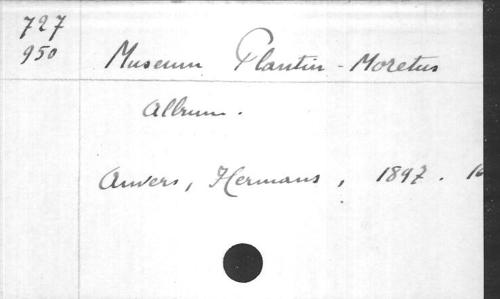 727
950
Museum Plantin-Moretus
Album.
Anvers, Hermans, 1897.